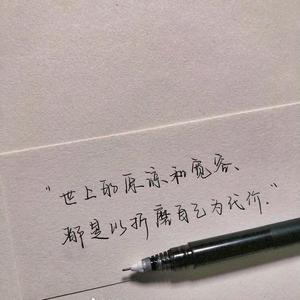 "世上的原谅和宽容、
都是以折磨自己为代价."